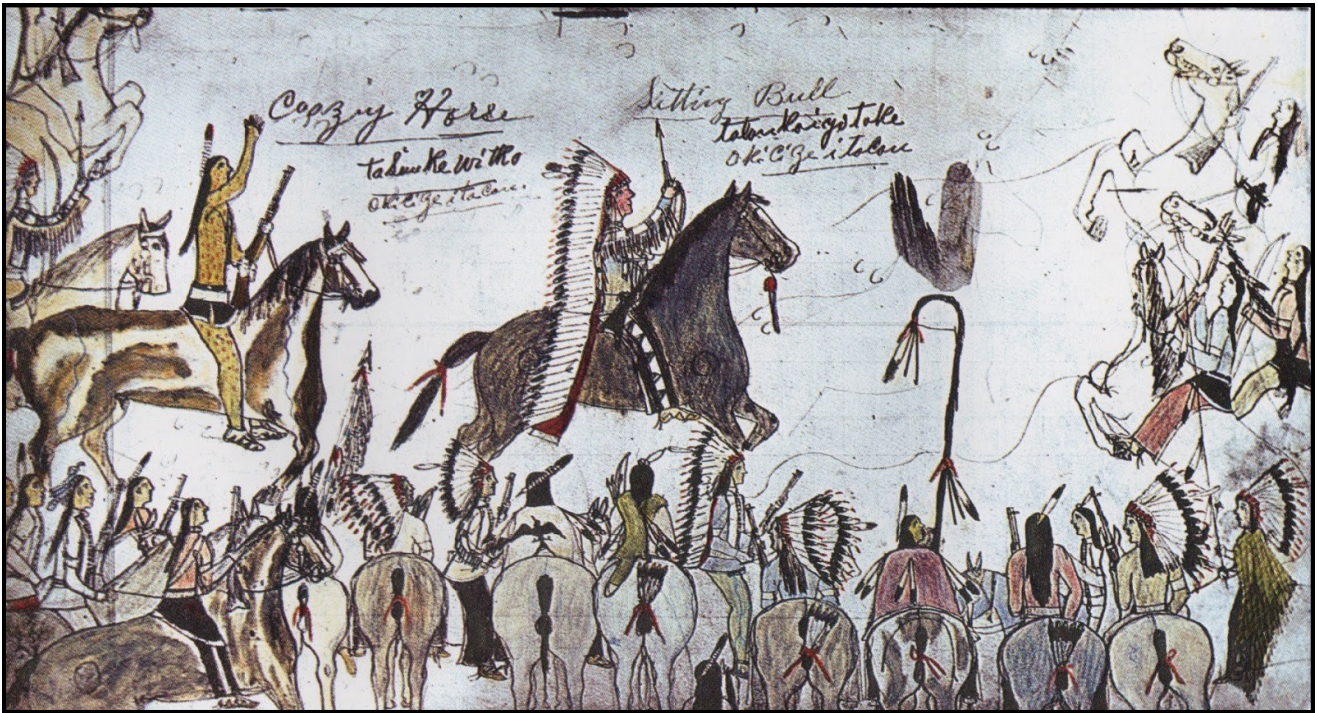 Crazy Horse
tasunke witko
okicize itacan.
Sitting Bull
tatankaiyotake
okicize itacan